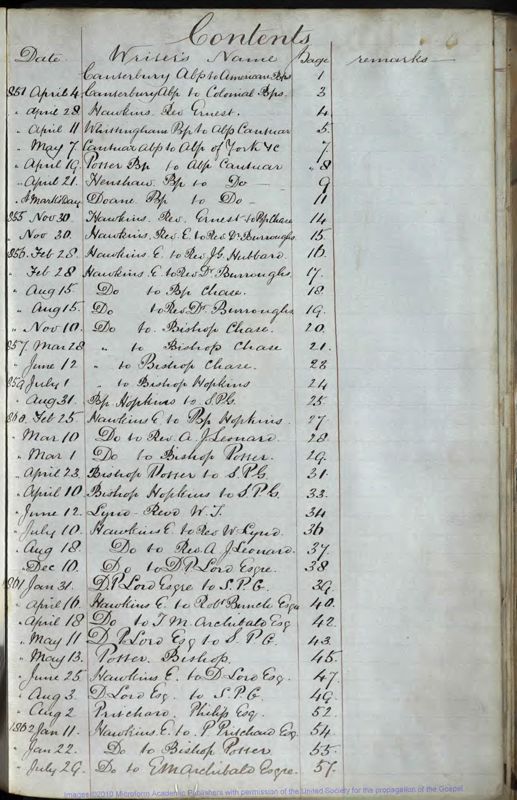 Contents
Date. Writer's Name Page remarks
Canterbury Abp to American Bps 1
851 April 4 Canterbury Abp to Colonial Bps. 3
" April 28 Hawkins. Rev Ernest. 4
" April 11 Whittingham Bp to Abp Cantuar 5
" May 7 Cantuar Abp to Abp of York &c 7
" April 19. Potter Bp to Abp Cantuar 8
" April 21. Henshaw. Bp to Do 9
" St Mark's Day Doane. Bp to Do 11
855 Nov 30 Hawkins. Rev. Ernest to Bp Chase 14
" Nov 30. Hawkins. Rev. E. to Rev. Dr Burroughs 15.
856. Feb 28. Hawkins. E. to Rev. J.G. Hubbard 16.
" Feb 28 Hawkins. E. to Rev. Dr Burroughs 17.
" Aug 15 Do to Bp Chase. 18.
" Aug 15. Do to Rev. Dr. Burroughs 19.
" Nov 10. Do to. Bishop Chase. 20.
857. Mar 28 " to Bishop Chase 21.
" June 12 " to Bishop Chase. 22
859 July 1 " to Bishop Hopkins 24
" Aug 31. Bp. Hopkins to S.P.G. 25
860. Feb 25 Hawkins E to Bp Hopkins. 27
" Mar 10 Do to Rev. A. J. Leonard. 28
" Mar 1 Do to Bishop Potter. 29.
" April 23. Bishop Potter to S.P.G 31
" April 10. Bishop Hopkins to S.P.G. 33.
" June 12. Lynd - Revd W. J. 34
" July 10. Hawkins E. to Rev. W. Lynd. 36
" Aug 18. Do to Rev. A J Leonard. 37.
" Dec 10. Do to D P Lord Esqre. 38
861 Jan 31. D. P. Lord Esqre to S.P.G. 39.
" April 16. Hawkins E. to Robt Bunch Esqre 40.
" April 18 Do to J M Archibald Esq 42.
" May 11 D. P. Lord Esq to S.P.G. 43.
" May 13. Potter. Bishop. 45.
" June 25 Hawkins E. to D. Lord Esq. 47.
" Aug 3. D Lord Esq. to S.P.G. 49.
" Aug 2 Pritchard, Philip Esq. 52.
1862 Jan 11. Hawkins. E. to. P Pritchard Esq. 54.
" Jan 22. Do to Bishop Potter 55
" July 29. Do to E M Archibald Esqre. 57.
Images ©2010 Microform Academic Publishers with permission of the United Society for the propagation of the Gospel